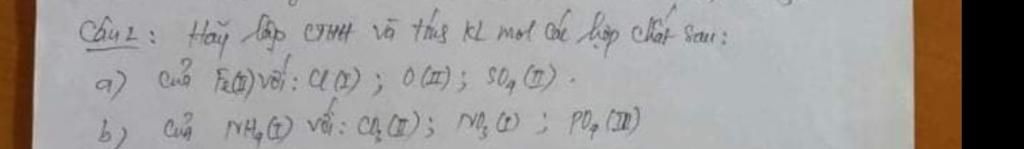 Câu 2: Hãy lập CTHH và tính KL mol các hợp chất sau:
a) Của Fe(II) với: Cl(I); O(II); SO4(II).
b) Của NH4(I) với: CO3(II); NO3(I); PO4(III)